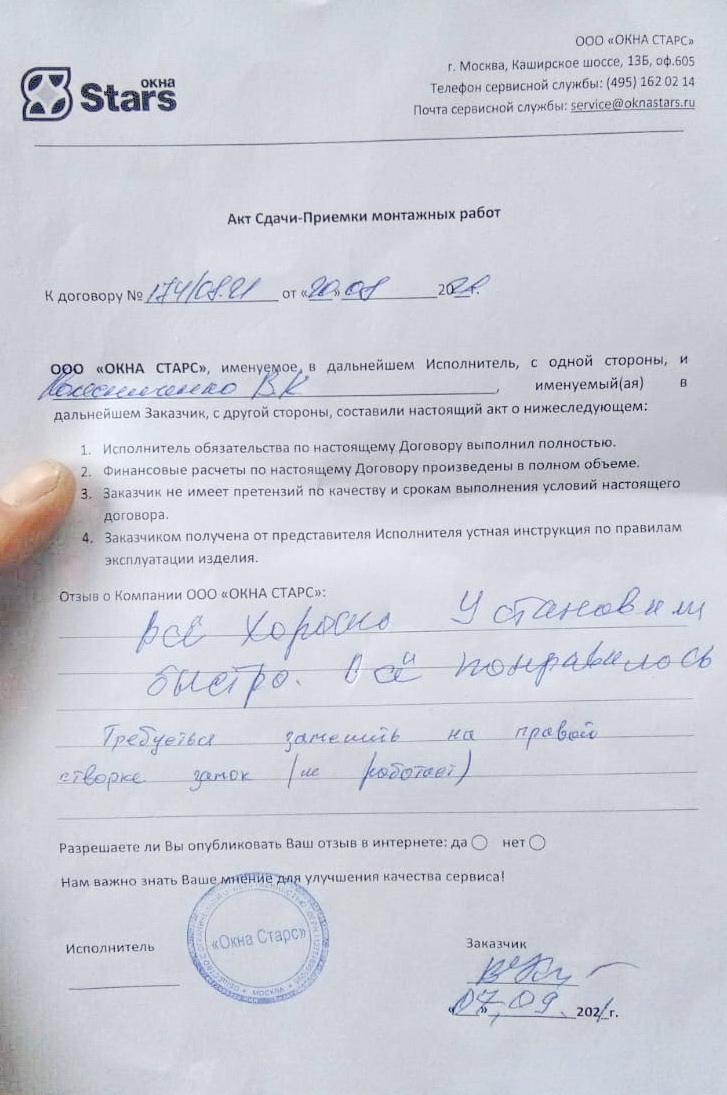 ОКНА
Stars
ООО «ОКНА СТАРС»
г. Москва, Каширское шоссе, 13Б, оф.605
Телефон сервисной службы: (495) 162 02 14
Почта сервисной службы: service@oknastars.ru
Акт Сдачи-Приемки монтажных работ
К договору № 174/08.21 от «20» 08 2021г.
ООО «ОКНА СТАРС», именуемое в дальнейшем Исполнитель, с одной стороны, и
Колесниченко В К, именуемый(ая) в
дальнейшем Заказчик, с другой стороны, составили настоящий акт о нижеследующем:
1. Исполнитель обязательства по настоящему Договору выполнил полностью.
2. Финансовые расчеты по настоящему Договору произведены в полном объеме.
3. Заказчик не имеет претензий по качеству и срокам выполнения условий настоящего
договора.
4. Заказчиком получена от представителя Исполнителя устная инструкция по правилам
эксплуатации изделия.
Отзыв о Компании ООО «ОКНА СТАРС»:
Всё хорошо Установили
быстро. Всё понравилось
Требуеться заменить на правой
створке замок (не работает)
Разрешаете ли Вы опубликовать Ваш отзыв в интернете: да нет
Нам важно знать Ваше мнение для улучшения качества сервиса!
Исполнитель
«Окна Старс»
МОСКВА
Заказчик
«07» 09. 2021г.